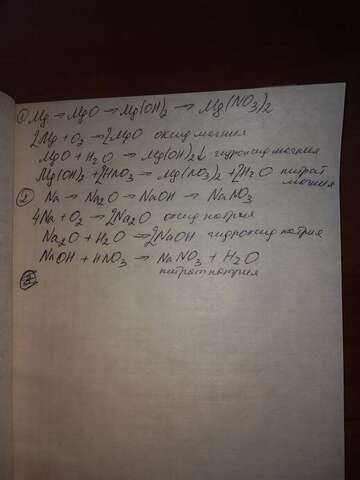 ① Mg → MgO → Mg(OH)₂ → Mg(NO₃)₂
2Mg + O₂ → 2MgO оксид магния
MgO + H₂O → Mg(OH)₂↓ гидроксид магния
Mg(OH)₂ + 2HNO₃ → Mg(NO₃)₂ + 2H₂O нитрат
магния
② Na → Na₂O → NaOH → NaNO₃
4Na + O₂ → 2Na₂O оксид натрия
Na₂O + H₂O → 2NaOH гидроксид натрия
NaOH + HNO₃ → NaNO₃ + H₂O
нитрат натрия